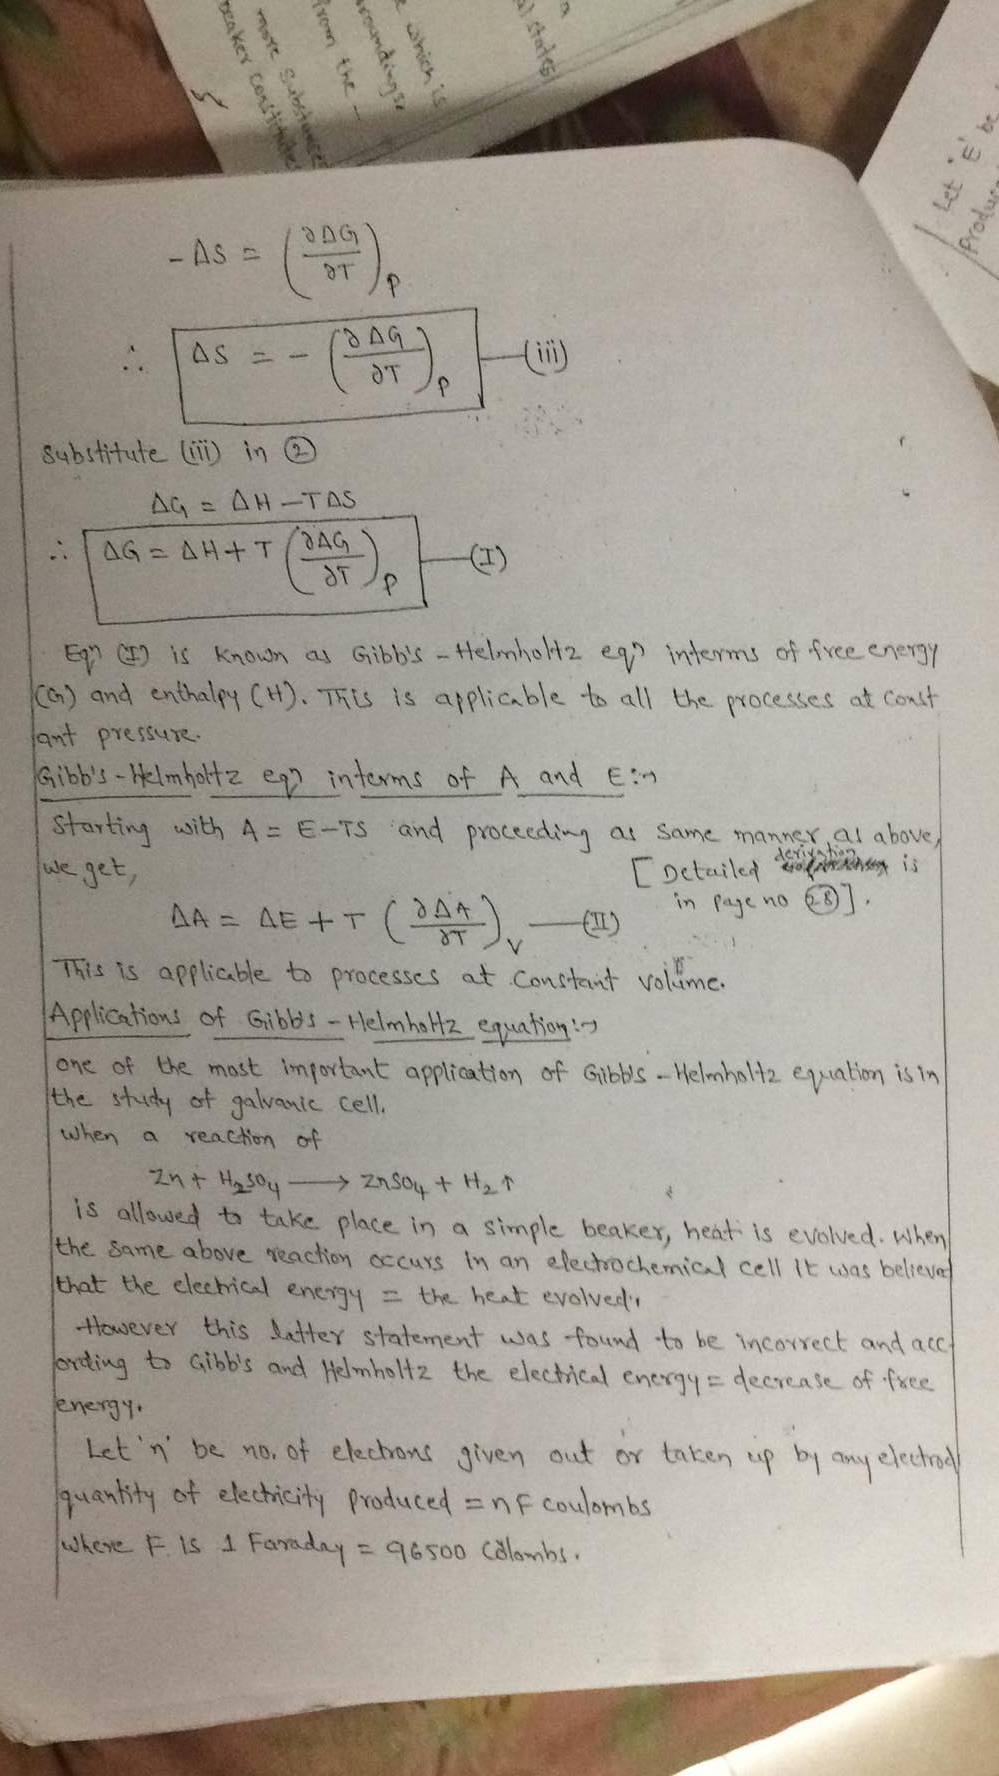 a
al states)
e which is
urroundings.
from the -
more Substances
beaker constitutes
Let 'E' be
produce
-ΔS = (∂ΔG/∂T)P
∴ ΔS = - (∂ΔG/∂T)P —(iii)
Substitute (iii) in ②
ΔG = ΔH - TΔS
∴ ΔG = ΔH + T (∂ΔG/∂T)P —(I)
Eqn (I) is known as Gibb's - Helmholtz eqn interms of free energy
(G) and enthalpy (H). This is applicable to all the processes at const
ant pressure.
Gibb's - Helmholtz eqn interms of A and E:→
Starting with A = E-TS and proceeding as same manner as above,
we get, [Detailed derivation is
in page no 28].
ΔA = ΔE + T (∂ΔA/∂T)V —(II)
This is applicable to processes at constant volume.
Applications of Gibb's - Helmholtz equation:→
one of the most important application of Gibb's - Helmholtz equation is in
the study of galvanic cell.
when a reaction of
Zn + H2SO4 ⟶ ZnSO4 + H2↑
is allowed to take place in a simple beaker, heat is evolved. When
the same above reaction occurs in an electrochemical cell it was believed
that the electrical energy = the heat evolved.
However this latter statement was found to be incorrect and acc-
ording to Gibb's and Helmholtz the electrical energy = decrease of free
energy.
Let 'n' be no. of electrons given out or taken up by any electrod
quantity of electricity produced = nF coulombs
where F is 1 Faraday = 96500 Colombs.